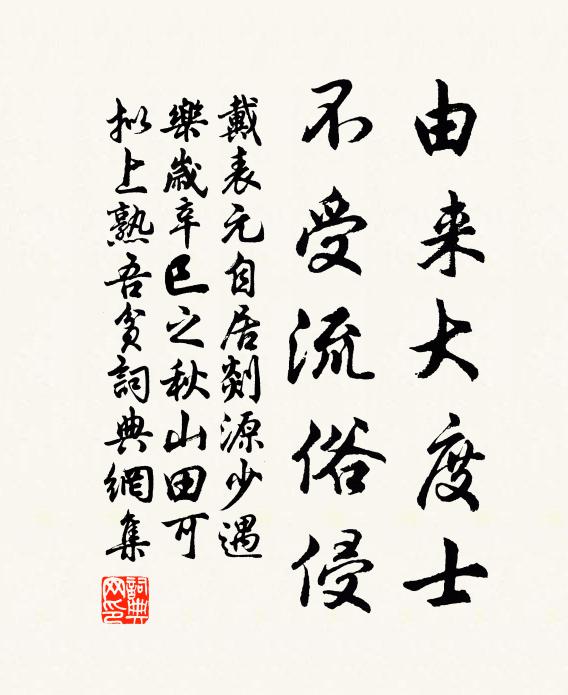 由来大度士
不受流俗侵
戴表元自居剡源少遇
樂歲辛巳之秋山田可
拟上熟吾貧詞典網集
詞典网印